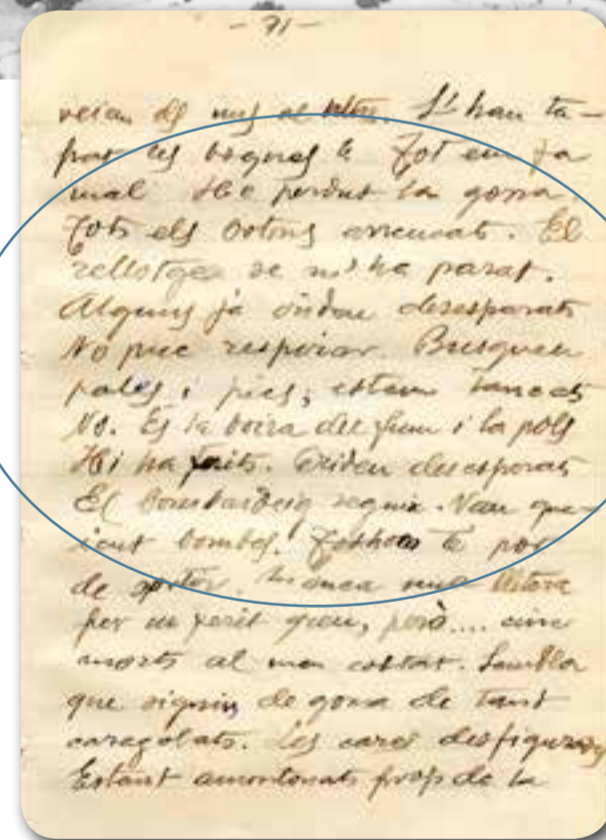 - 71 -
veien els uns als altres. S'han ta-
pat les boques Tot em fa
mal He perdut la gorra.
Tots els botons arrencats. El
rellotge se m'ha parat.
Alguns ja criden desesperats
No puc respirar. Busquen
pales i pics; estem tancats
No. Es la boira del fum i la pols
Hi ha ferits. Criden desesperats
El bombardeig segueix. Van que-
ient bombes. Tothom té por
de sortir. una llitera
per un ferit greu, però.... cinc
morts al meu costat. Sembla
que siguin de goma de tant
caragolats. Les cares desfigurades
Estant amontonats prop de la